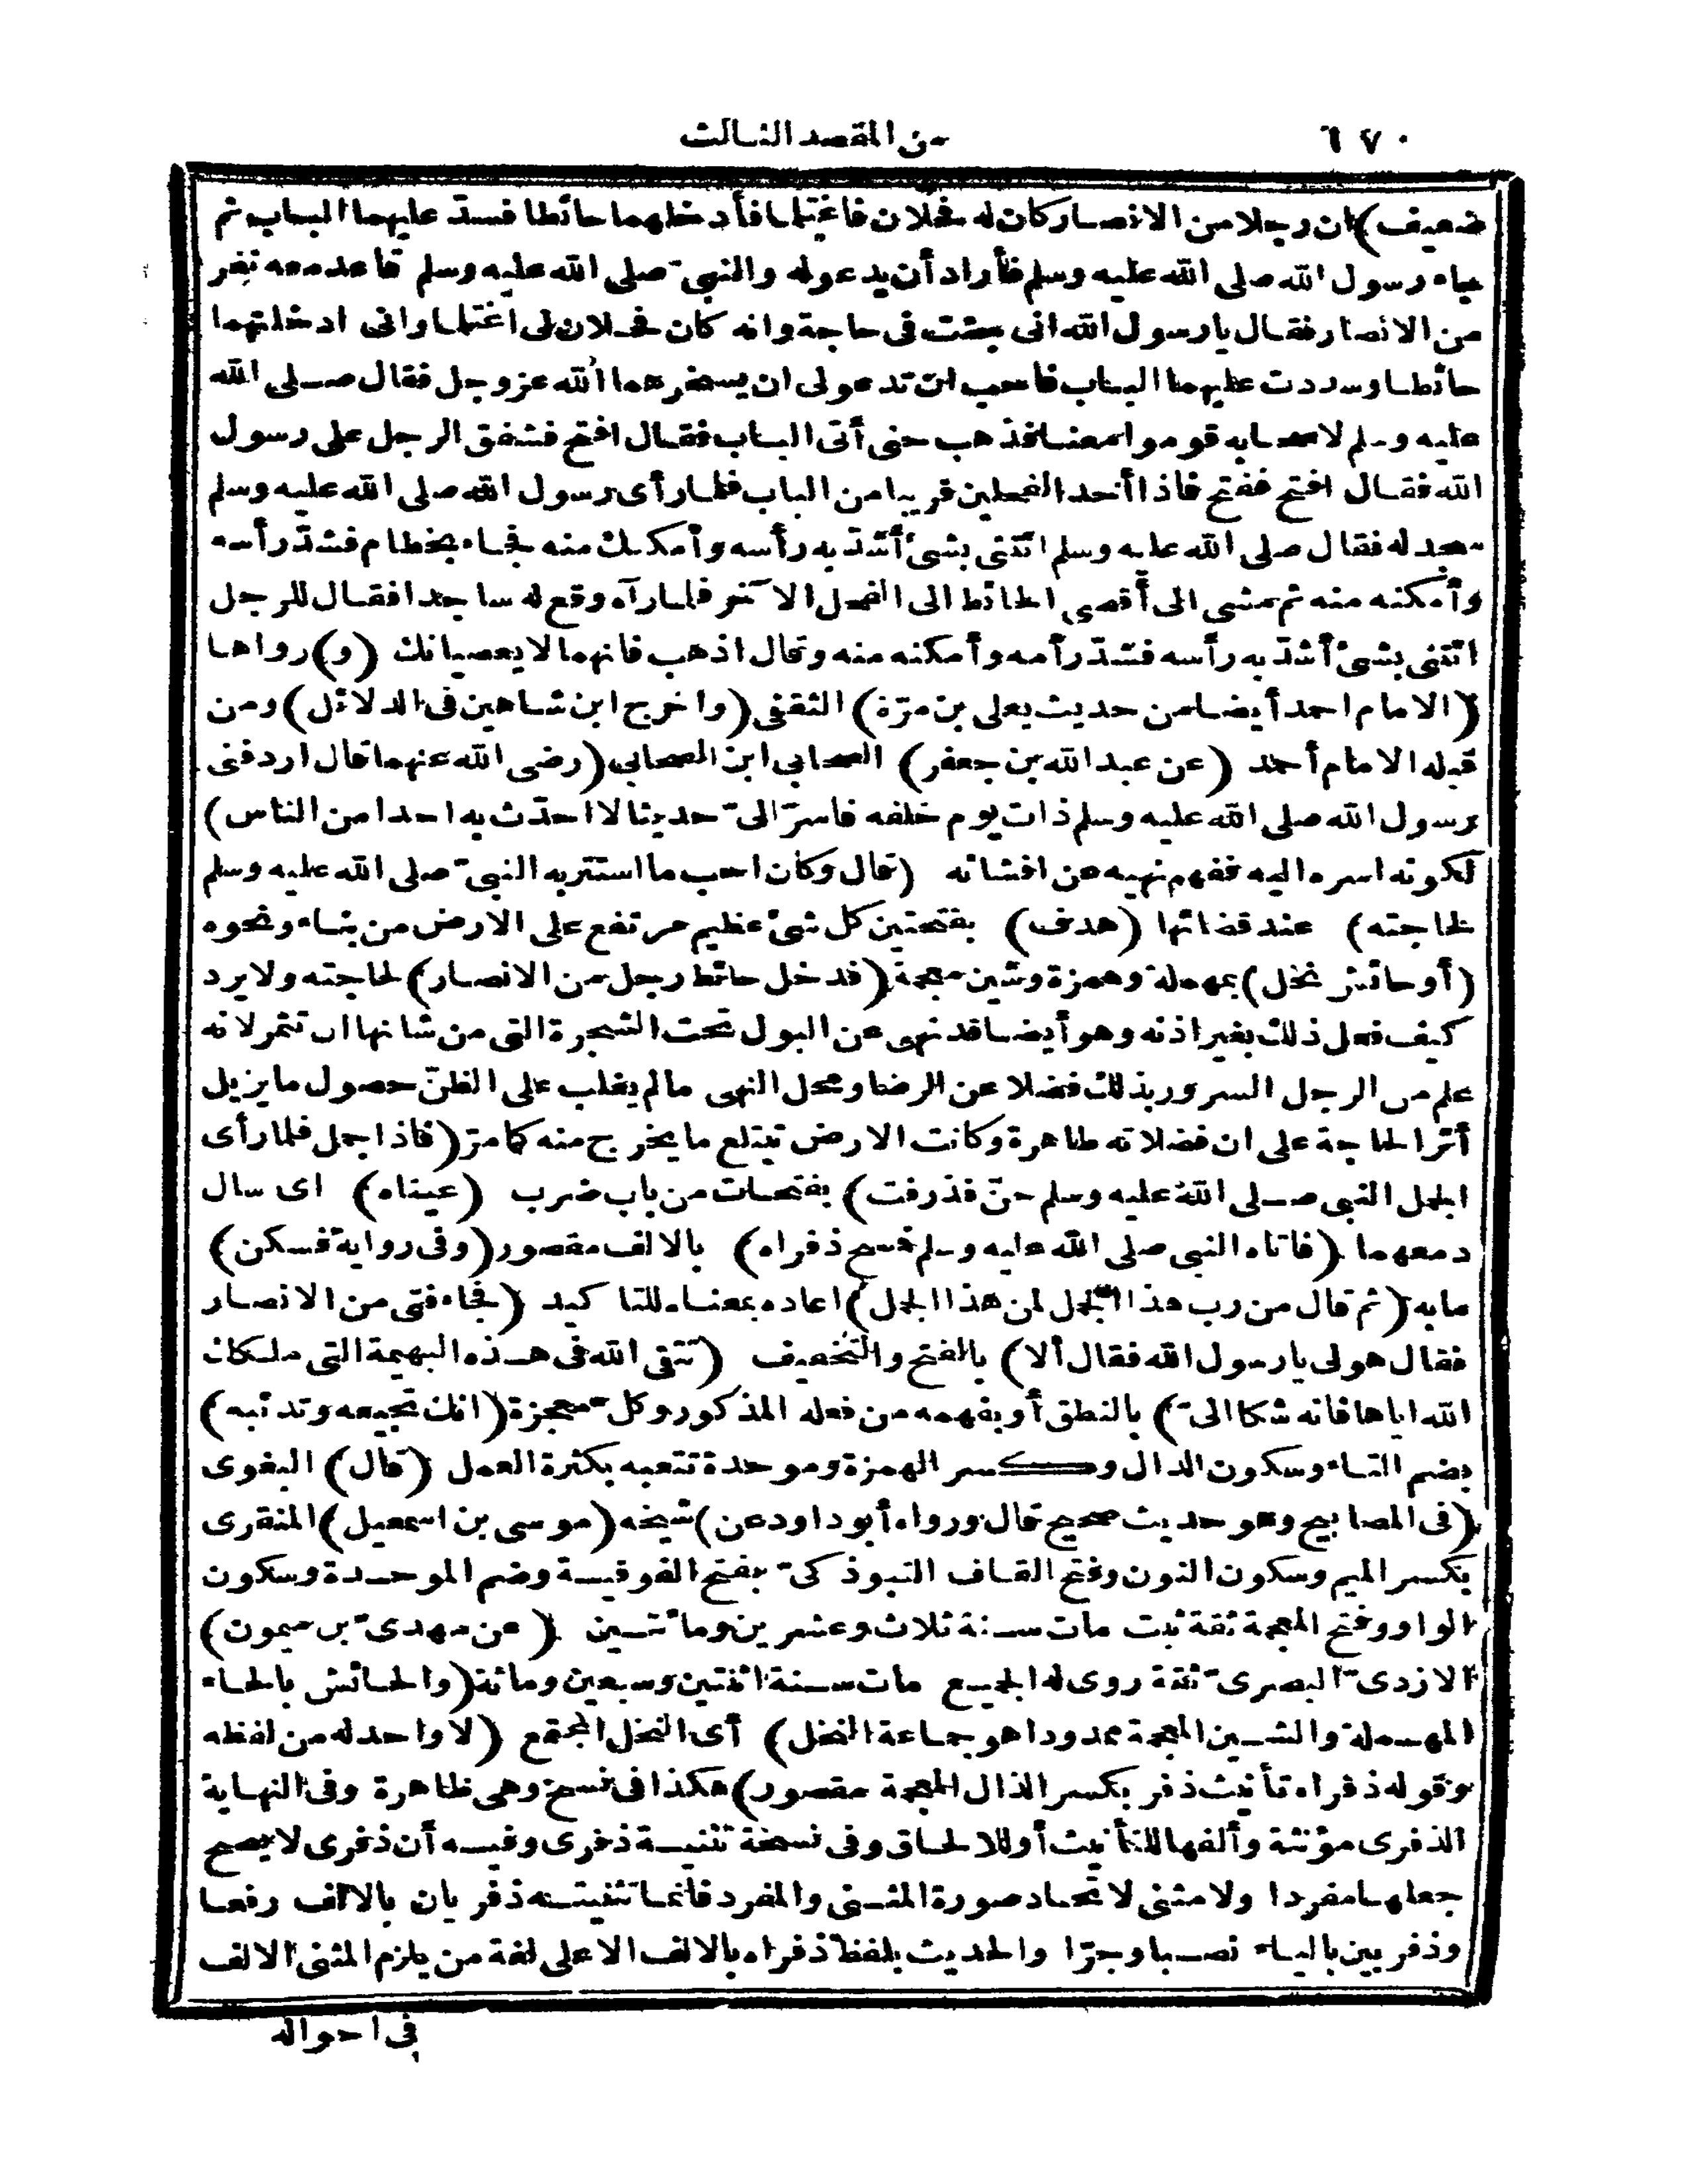 ٦٧٠
من المقصد الثالث
ضعيف) ان رجلا من الانصار كان له فحلان فاغتلما فأدخلهما حائطا فسدّ عليهما الباب ثم
جاء رسول الله صلى الله عليه وسلم فأراد أن يدعو له والنبيّ صلى الله عليه وسلم قاعد معه نفر
من الانصار فقال يارسول الله انى جئت فى حاجة وانه كان فحلان لى اغتلما وانى ادخلتهما
حائطا وسددت عليهما الباب فاحب ان تدعو لى ان يسخرهما الله عز وجل فقال صلى الله
عليه وسلم لاصحابه قوموا معنا فذهب حتى أتى الباب فقال افتح فشفق الرجل على رسول
الله فقال افتح ففتح فاذا أحد الفحلين قريبا من الباب فلما رأى رسول الله صلى الله عليه وسلم
سجد له فقال صلى الله عليه وسلم ائتنى بشئ أشدّ به رأسه وأمكنك منه فجاء بخطام فشدّ رأسه
وأمكنه منه ثم مشى الى أقصى الحائط الى الفحل الآخر فلما رآه وقع له ساجدا فقال للرجل
ائتنى بشئ أشدّ به رأسه فشدّ رأسه وأمكنه منه وقال اذهب فانهما لا يعصيانك (و) رواها
(الامام احمد أيضا من حديث يعلى بن مرّة) الثقفى (واخرج ابن شاهين فى الدلائل) ومن
قبله الامام أحمد (عن عبد الله بن جعفر) الصحابى ابن الصحابى (رضى الله عنهما قال اردفنى
رسول الله صلى الله عليه وسلم ذات يوم خلفه فاسرّ الىّ حديثا لا احدّث به احدا من الناس)
لكونه اسره اليه ففهم نهيه عن افشائه (قال وكان احب ما استتر به النبىّ صلى الله عليه وسلم
لحاجته) عند قضائها (هدف) بفتحتين كل شئ عظيم مرتفع على الارض من بناء ونحوه
(أو حائش نخل) بمهملة وهمزة وشين معجمة (فدخل حائط رجل من الانصار) لحاجته ولا يرد
كيف فعل ذلك بغير اذنه وهو أيضا قد نهى عن البول تحت الشجرة التى من شانها ان تثمر لانه
علم من الرجل السرور بذلك فضلا عن الرضا ومحل النهى مالم يغلب على الظنّ حصول ما يزيل
أثر الحاجة على ان فضلاته طاهرة وكانت الارض تبتلع ما يخرج منه كما مرّ (فاذا جمل فلما رأى
الجمل النبى صلى الله عليه وسلم حنّ فذرفت) بفتحات من باب ضرب (عيناه) اى سال
دمعهما (فاتاه النبى صلى الله عليه وسلم فمسح ذفراه) بالالف مقصور (وفى رواية فسكن)
ما به (ثم قال من رب هذا الجمل لمن هذا الجمل) اعاده بمعناه للتاكيد (فجاء فتى من الانصار
فقال هو لى يارسول الله فقال ألا) بالفتح والتخفيف (تتقى الله فى هذه البهيمة التى ملكك
الله اياها فانه شكا الىّ) بالنطق أو بفهمه من فعله المذكور وكل معجزة (انك تجيعه وتدئبه)
بضم التاء وسكون الدال وكسر الهمزة وموحدة تتعبه بكثرة العمل (قال) البغوى
(فى المصابيح وهو حديث صحيح قال ورواه أبو داود عن) شيخه (موسى بن اسمعيل) المنقرى
بكسر الميم وسكون النون وفتح القاف التبوذكىّ بفتح الفوقية وضم الموحدة وسكون
الواو وفتح المعجمة ثقة ثبت مات سنة ثلاث وعشرين ومائتين (عن مهدىّ بن ميمون)
الازدىّ البصرىّ ثقة روى له الجميع مات سنة اثنتين وسبعين ومائة (والحائش بالحاء
المهملة والشين المعجمة ممدودا هو جماعة النخل) أى النخل المجتمع (لا واحد له من لفظه
وقوله ذفراه تأنيث ذفر بكسر الذال المعجمة مقصور) هكذا فى نسخ وهى ظاهرة وفى النهاية
الذفرى مؤنثة وألفها للتأنيث أو للالحاق وفى نسخة تثنية ذفرى وفيه أن ذفرى لا يصح
جعلها مفردا ولا مثنى لاتحاد صورة المثنى والمفرد فانما تثنيته ذفريان بالالف رفعا
وذفريين بالياء نصبا وجرّا والحديث بلفظ ذفراه بالالف الا على لغة من يلزم المثنى الالف
فى احواله